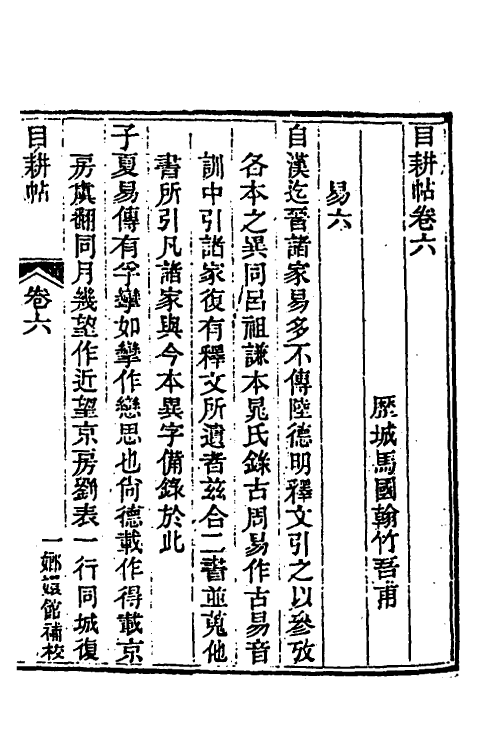 目耕帖卷六
歷城馬國翰竹吾甫
易六
自漢迄晉諸家易多不傳陸德明釋文引之以參攷
各本之異同呂祖謙本晁氏錄古周易作古易音
訓中引諸家復有釋文所遺者兹合二書並蒐他
書所引凡諸家與今本異字備錄於此
子夏易傳有孚攣如攣作戀思也尙德載作得載京
房虞翻同月幾望作近望京房劉表一行同城復
目耕帖
卷六
一
嫏嬛館補校